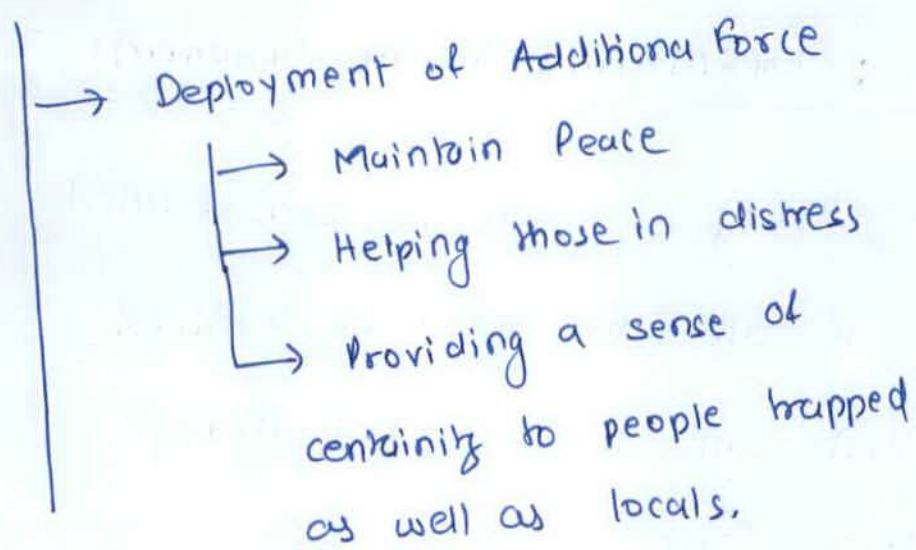 → Deployment of Additiona Force
→ Maintain Peace
→ Helping those in distress
→ Providing a sense of
centainity to people trapped
as well as locals.